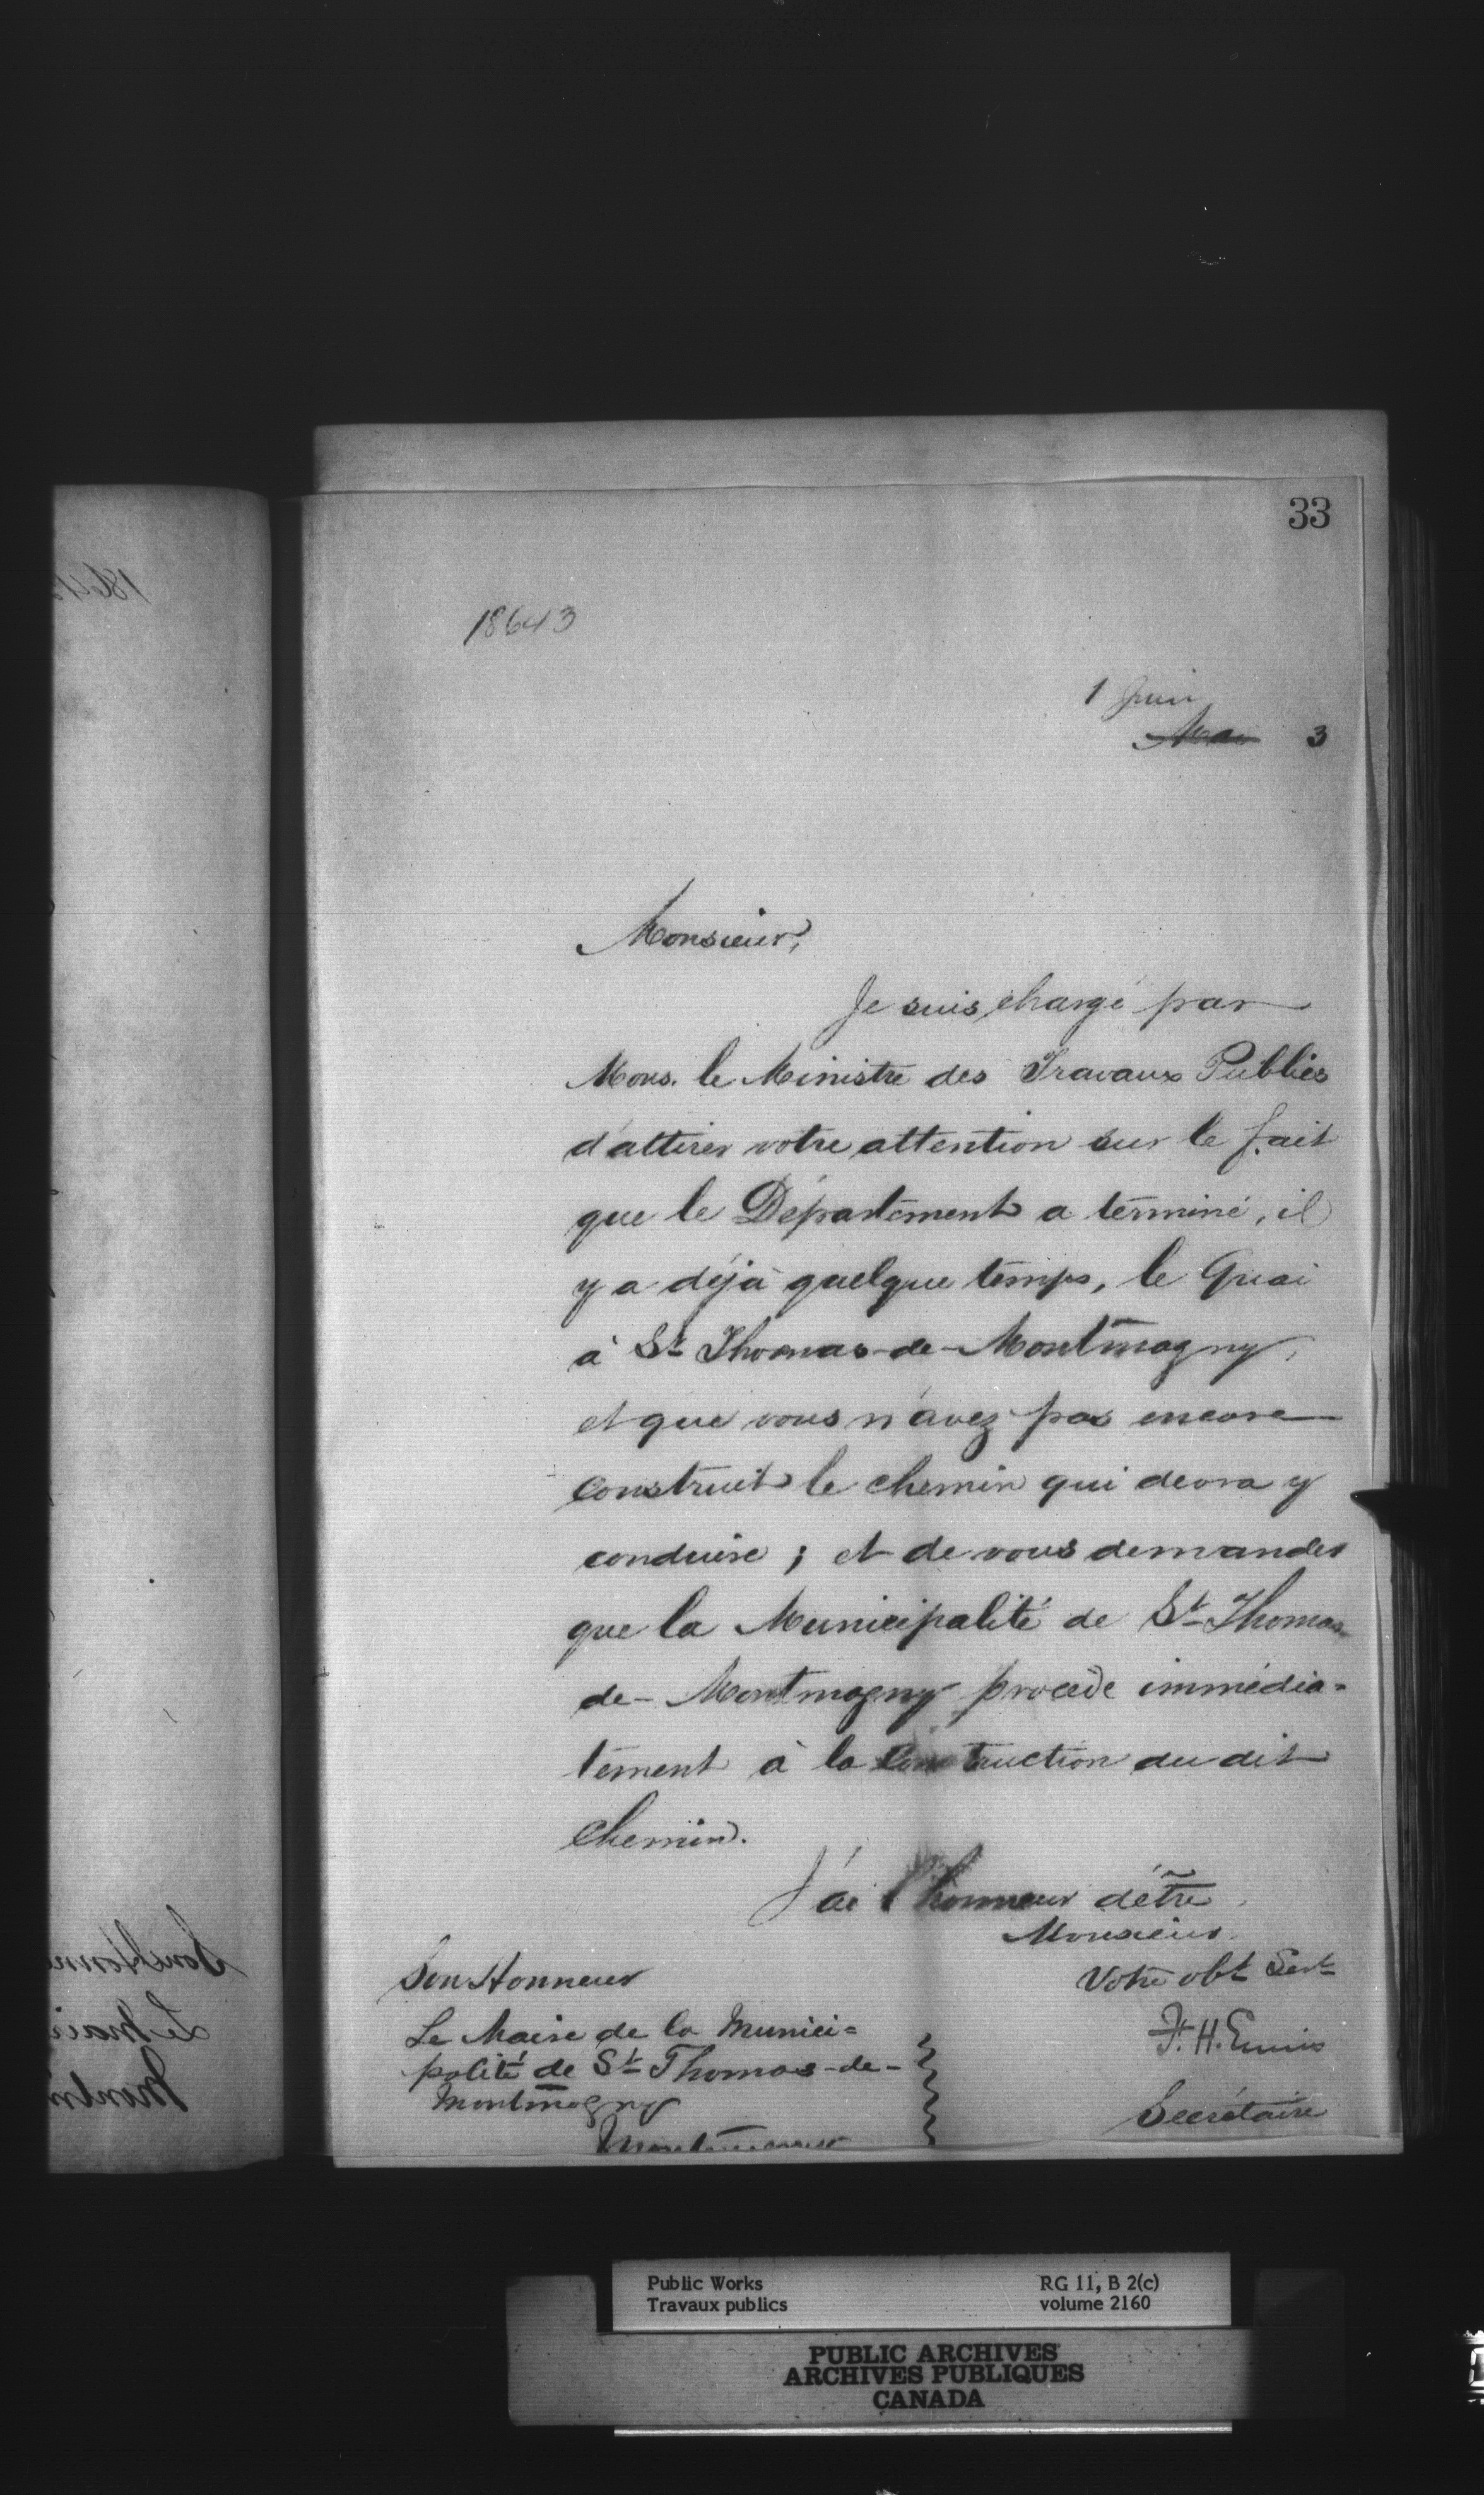 33
18643
1 Juin
Mai 3
Monsieur,
Je suis chargé par
Mons. le Ministre des Travaux Publics
d'attirer votre attention sur le fait
que le Département a terminé, il
y a déjà quelque temps, le Quai
à St Thomas-de-Montmagny,
et que vous n'avez pas encore
construit le chemin qui devra y
conduire ; et de vous demander
que la Municipalité de St Thomas-
de-Montmagny procède immédia=
tement à la construction du dit
chemin.
J'ai l'honneur d'être
Monsieur,
Votre obt Sert
F. H. Ennis
Secrétaire
Son Honneur
Le Maire de la Munici=
palité de St Thomas-de-
Montmagny
Montmagny
Public Works
Travaux publics
RG 11, B 2(c)
volume 2160
PUBLIC ARCHIVES
ARCHIVES PUBLIQUES
CANADA